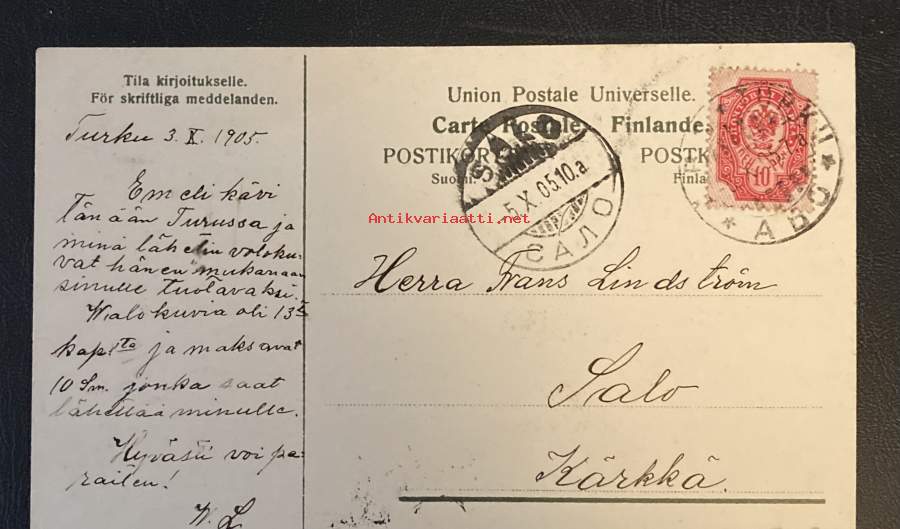 Tila kirjoitukselle.
För skriftliga meddelanden.
Turku 3. X. 1905.
Emeli kävi
tänään Turussa ja
minä lähetin valoku-
vat hänen mukanaan
sinulle tuotavaksi.
Walokuvia oli 13ta
kaplta ja maksavat
10 Sm. jonka saat
lähettää minulle.
Hyvästi voi pa-
raiten!
W. L
Union Postale Universelle.
Carte Postale. Finlande.
POSTIKORT
POSTK
Suom
Finla
SALO
5.X.05.10.a
САЛО
TURKU
ÅBO
10
Antikvariaatti.net
Herra Frans Lindström
Salo
Kärkkä.